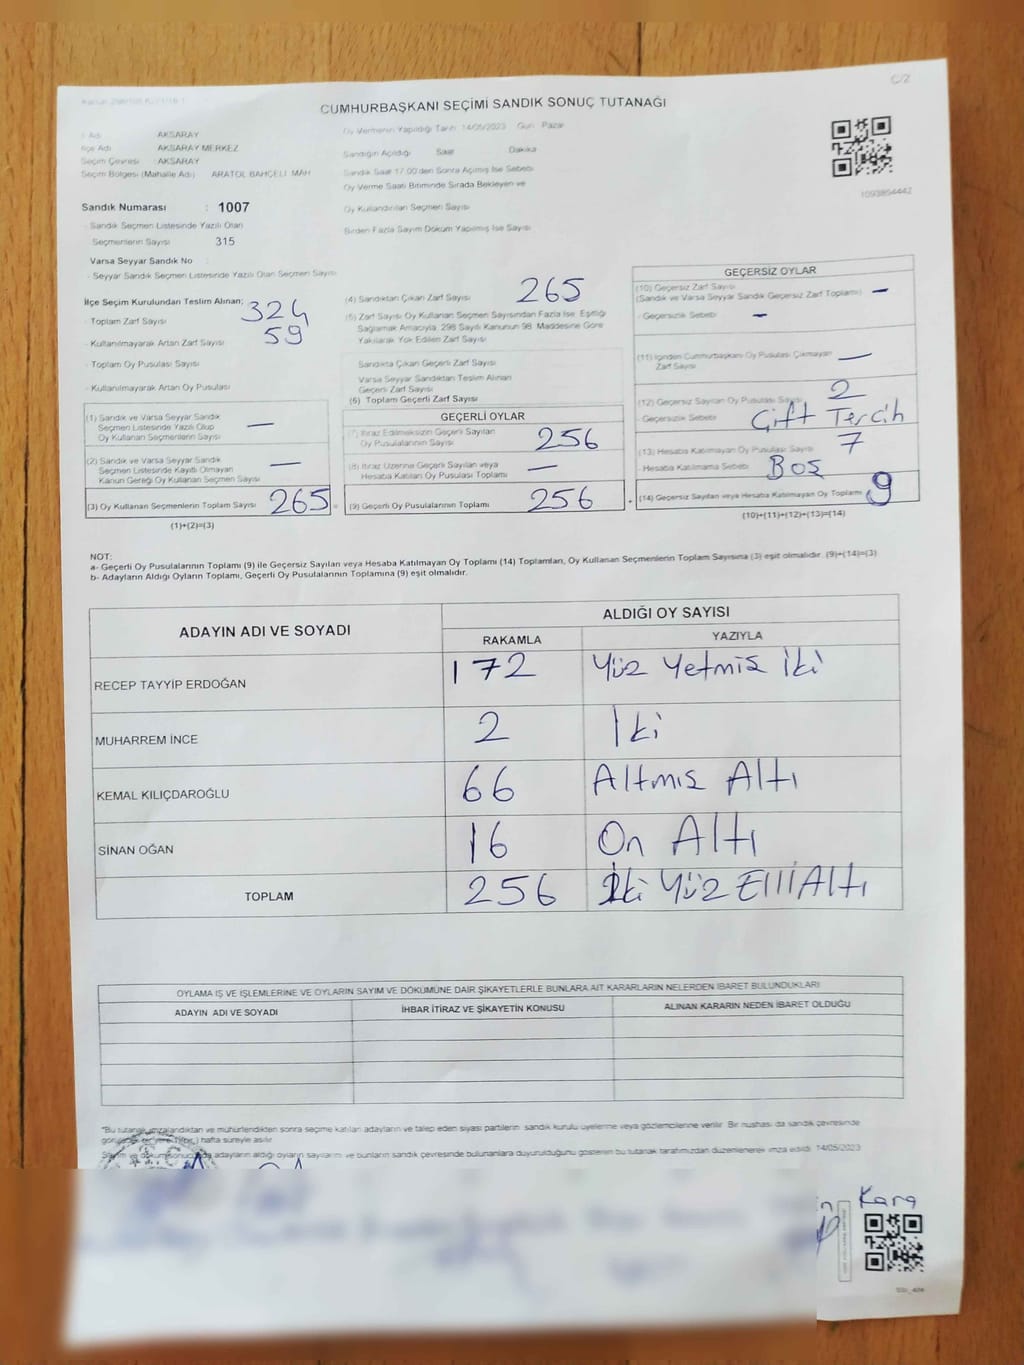 C/2
CUMHURBAŞKANI SEÇİMİ SANDIK SONUÇ TUTANAĞI
İl Adı AKSARAY
İlçe Adı AKSARAY MERKEZ
Seçim Çevresi AKSARAY
Seçim Bölgesi (Mahalle Adı) ARATOL BAHÇELİ MAH
Sandık Numarası : 1007
- Sandık Seçmen Listesinde Yazılı Olan
Seçmenlerin Sayısı 315
Varsa Seyyar Sandık No
- Seyyar Sandık Seçmen Listesinde Yazılı Olan Seçmen Sayısı
Oy Vermenin Yapıldığı Tarih: 14/05/2023 Gün: Pazar
Sandığın Açıldığı Saat Dakika
Sandık Saat 17.00'den Sonra Açılmış İse Sebebi
Oy Verme Saati Bitiminde Sırada Bekleyen ve
Oy Kullandırılan Seçmen Sayısı
Birden Fazla Sayım Döküm Yapılmış İse Sayısı
1093894442
İlçe Seçim Kurulundan Teslim Alınan;
- Toplam Zarf Sayısı 324
- Kullanılmayarak Artan Zarf Sayısı 59
- Toplam Oy Pusulası Sayısı
- Kullanılmayarak Artan Oy Pusulası
(1) Sandık ve Varsa Seyyar Sandık
Seçmen Listesinde Yazılı Olup
Oy Kullanan Seçmenlerin Sayısı —
(2) Sandık ve Varsa Seyyar Sandık
Seçmen Listesinde Kayıtlı Olmayan
Kanun Gereği Oy Kullanan Seçmen Sayısı —
(3) Oy Kullanan Seçmenlerin Toplam Sayısı 265
(1)+(2)=(3)
(4) Sandıktan Çıkan Zarf Sayısı 265
(5) Zarf Sayısı Oy Kullanan Seçmen Sayısından Fazla İse, Eşitliği
Sağlamak Amacıyla, 298 Sayılı Kanunun 98. Maddesine Göre
Yakılarak Yok Edilen Zarf Sayısı
Sandıkta Çıkan Geçerli Zarf Sayısı
Varsa Seyyar Sandıktan Teslim Alınan
Geçerli Zarf Sayısı
(6) Toplam Geçerli Zarf Sayısı
GEÇERLİ OYLAR
(7) İtiraz Edilmeksizin Geçerli Sayılan
Oy Pusulalarının Sayısı 256
(8) İtiraz Üzerine Geçerli Sayılan veya
Hesaba Katılan Oy Pusulası Toplamı —
= (9) Geçerli Oy Pusulalarının Toplamı 256
GEÇERSİZ OYLAR
(10) Geçersiz Zarf Sayısı
(Sandık ve Varsa Seyyar Sandık Geçersiz Zarf Toplamı) —
- Geçersizlik Sebebi —
(11) İçinden Cumhurbaşkanı Oy Pusulası Çıkmayan
Zarf Sayısı —
(12) Geçersiz Sayılan Oy Pusulası Sayısı 2
- Geçersizlik Sebebi Çift Tercih
(13) Hesaba Katılmayan Oy Pusulası Sayısı 7
- Hesaba Katılmama Sebebi Boş
+ (14) Geçersiz Sayılan veya Hesaba Katılmayan Oy Toplamı 9
(10)+(11)+(12)+(13)=(14)
NOT:
a- Geçerli Oy Pusulalarının Toplamı (9) ile Geçersiz Sayılan veya Hesaba Katılmayan Oy Toplamı (14) Toplamları, Oy Kullanan Seçmenlerin Toplam Sayısına (3) eşit olmalıdır. (9)+(14)=(3)
b- Adayların Aldığı Oyların Toplamı, Geçerli Oy Pusulalarının Toplamına (9) eşit olmalıdır.
ADAYIN ADI VE SOYADI ALDIĞI OY SAYISI
RAKAMLA YAZIYLA
RECEP TAYYİP ERDOĞAN 172 Yüz Yetmiş İki
MUHARREM İNCE 2 İki
KEMAL KILIÇDAROĞLU 66 Altmış Altı
SİNAN OĞAN 16 On Altı
TOPLAM 256 İki Yüz Elli Altı
OYLAMA İŞ VE İŞLEMLERİNE VE OYLARIN SAYIM VE DÖKÜMÜNE DAİR ŞİKAYETLERLE BUNLARA AİT KARARLARIN NELERDEN İBARET BULUNDUKLARI
ADAYIN ADI VE SOYADI İHBAR İTİRAZ VE ŞİKAYETİN KONUSU ALINAN KARARIN NEDEN İBARET OLDUĞU
*Bu tutanak imzalandıktan ve mühürlendikten sonra seçime katılan adayların ve talep eden siyasi partilerin sandık kurulu üyelerine veya gözlemcilerine verilir. Bir nüshası da sandık çevresinde
hafta süreyle asılır.
adayların aldığı oyların sayılarını ve bunların sandık çevresinde bulunanlara duyurulduğunu gösteren bu tutanak tarafımızdan düzenlenerek imza edildi. 14/05/2023
Kara